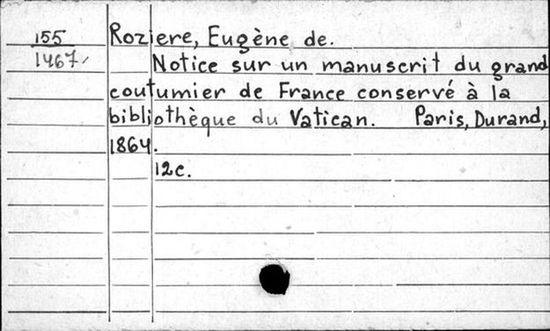 155 Roziere, Eugène de.
1467. Notice sur un manuscrit du grand
coutumier de France conservé à la
bibliothèque du Vatican. Paris, Durand,
1864.
12c.